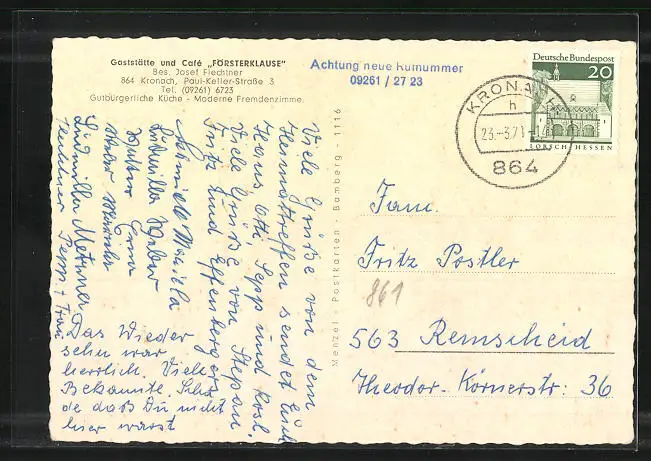 Gaststätte und Café „FÖRSTERKLAUSE"
Bes. Josef Fiechtner
864 Kronach, Paul-Keller-Straße 3
Tel. (09261) 6723
Gutbürgerliche Küche - Moderne Fremdenzimme
Achtung neue Rufnummer
09261 / 27 23
Deutsche Bundespost
20
LORSCH/HESSEN
KRONACH
h
23.-3.71-14
864
Menzel - Postkarten - Bamberg - 1116
Viele Grüße von dem
Heimattreffen sendet Euch
Hans Otti, Sepp und Rosl.
Viele Grüße von Stepan
Fritz und Effenberger
Ludmilla Weber
Walter Erna
Ludmilla
Sepp + Trau
Das Wieder
sehn war
herrlich. Viele
Bekannte. Scha
de daß Du nicht
hier warst
Fam.
Fritz Postler
861
563 Remscheid
Theodor-Körnerstr: 36